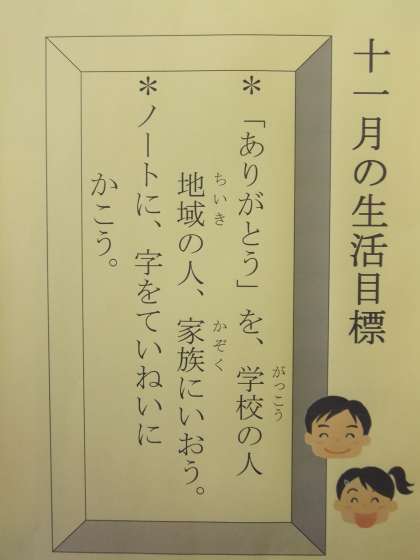 十一月の生活目標
＊「ありがとう」を、学校の人
がっこう
地域の人、家族にいおう。
ちいき
かぞく
＊ノートに、字をていねいに
かこう。